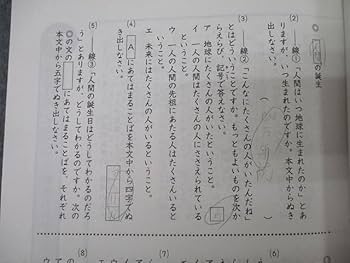 の誕生
(1)
(2) ——線①「人間はいつ地球に生まれたのか」とあ
りますが、いつ生まれたのですか。本文中からぬき
出しなさい。
(3) ——線②「こんなにたくさんの人がいたんだね」
とはどういうことですか。もっともよいものを次か
らえらび、記号で答えなさい。
ア 地球にたくさんの人がいたということ。
イ 一人の人間はたくさんの人にささえられている
ということ。
ウ 一人の人間の先祖にあたる人はたくさんいると
いうこと。
エ 未来にはたくさんの人がいるということ。
(4) A にあてはまることばを本文中から四字でぬ
き出しなさい。
(5) ——線③「人間の誕生日はどうしてわかるのだろ
う」とありますが、どうしてわかるのですか。次の
◎の文の にあてはまることばを、それぞれ
本文中から五字でぬき出しなさい。
(6)
(7)
(8)